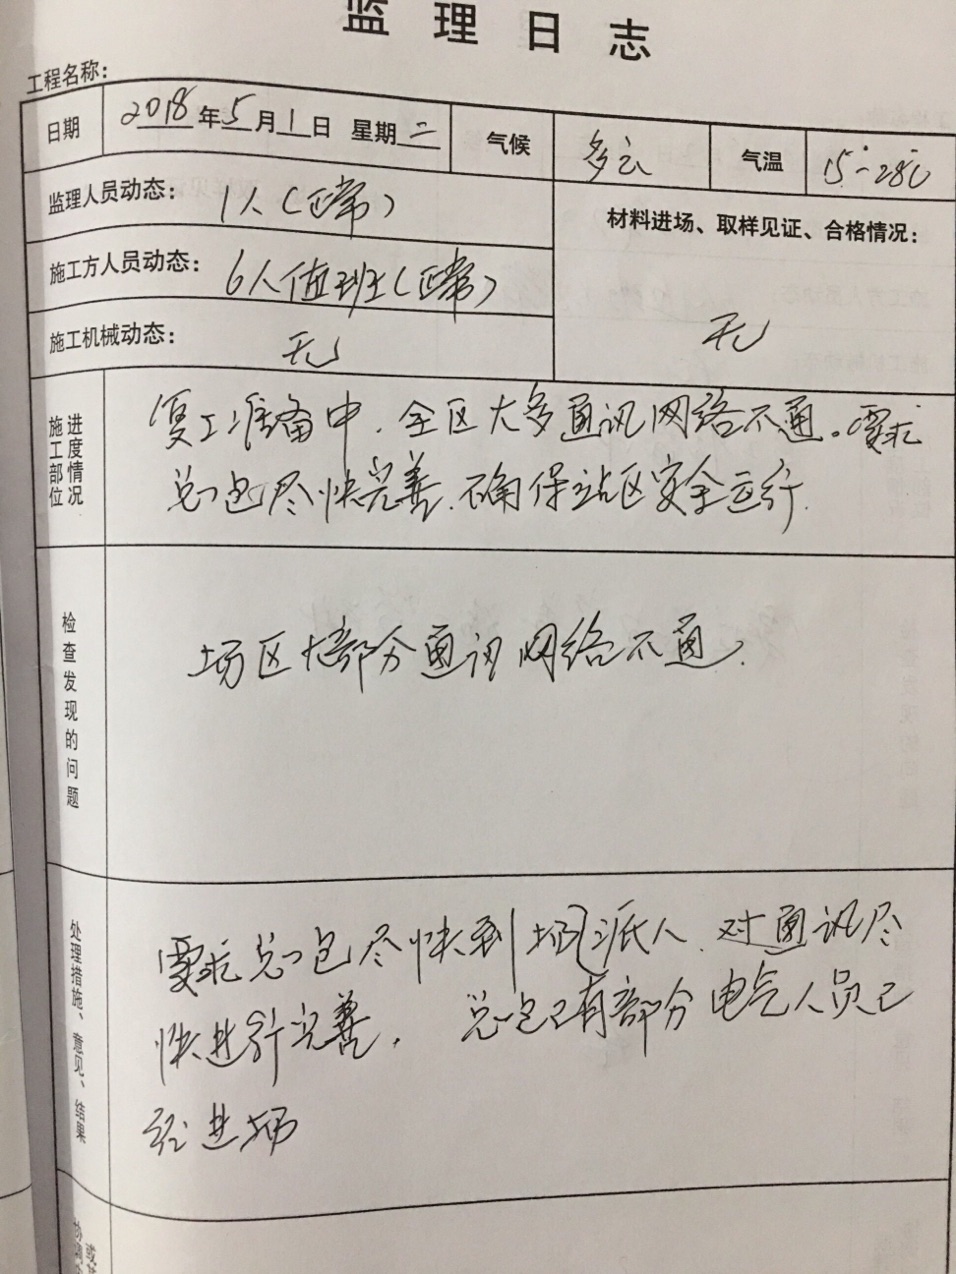 监理日志
工程名称：
日期 2018年5月1日 星期二 气候 多云 气温 15°-28℃
监理人员动态： 1人（正常）
材料进场、取样见证、合格情况：
施工方人员动态： 6人值班（正常）
无
施工机械动态： 无
施工部位
进度情况
复工准备中．全区大多通讯网络不通。要求
总包尽快完善．确保站区安全运行．
检查发现的问题
场区大部分通讯网络不通．
处理措施、意见、结果
要求总包尽快到场派人．对通讯尽
快进行完善． 总包已有部分电气人员已
经进场